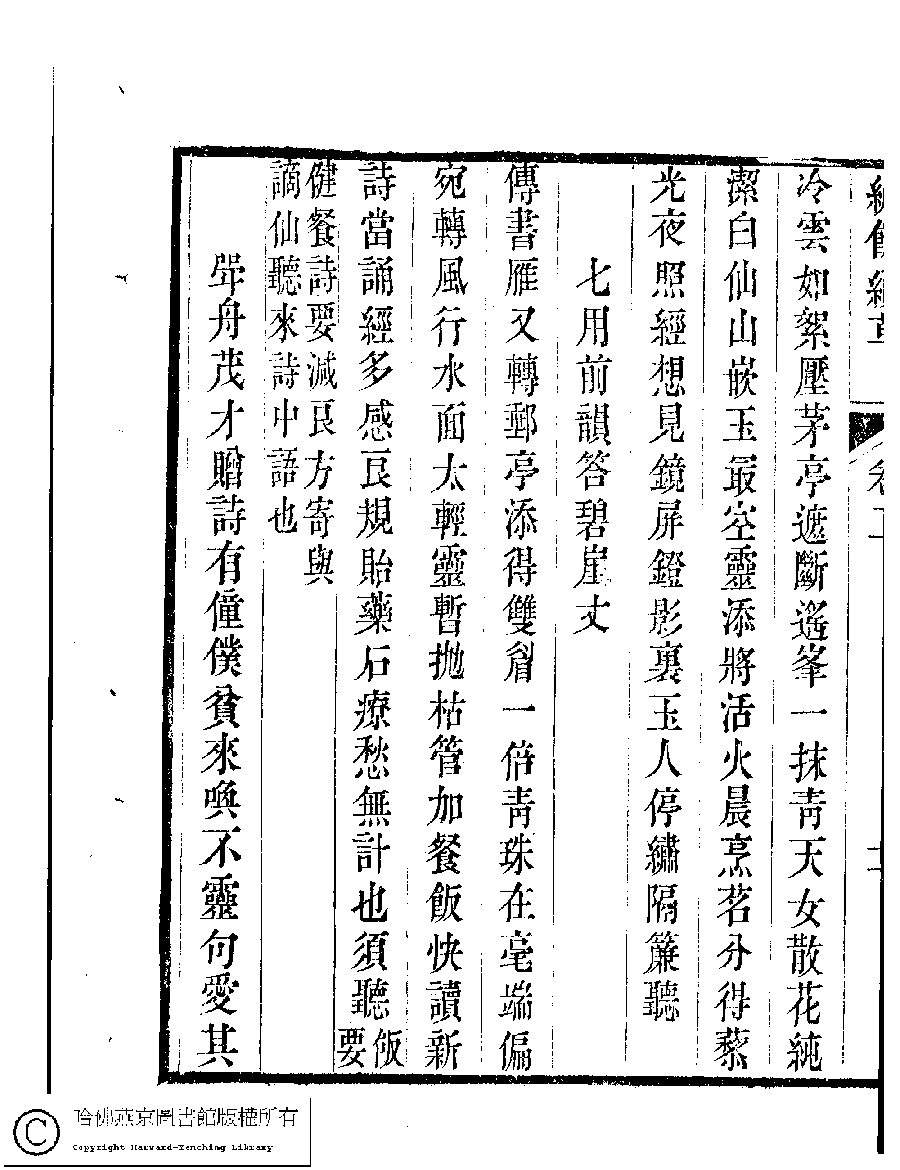 冷雲如絮壓茅亭遮斷遙峯一抹靑天女散花純
潔白仙山嵌玉最空靈添將活火晨烹茗分得藜
光夜照經想見鏡屏鐙影裏玉人停繡隔簾聽
七用前韻答碧崖丈
傳書雁又轉郵亭添得雙眉一倍靑珠在毫端偏
宛轉風行水面太輕靈暫拋枯管加餐飯快讀新
詩當誦經多感良規貽藥石療愁無計也須聽飯要
健餐詩要減良方寄與
謫仙聽來詩中語也
舟茂才贈詩有僮僕貧來喚不靈句愛其
哈佛燕京圖書館版權所有
Copyright Harvard-Yenching Library